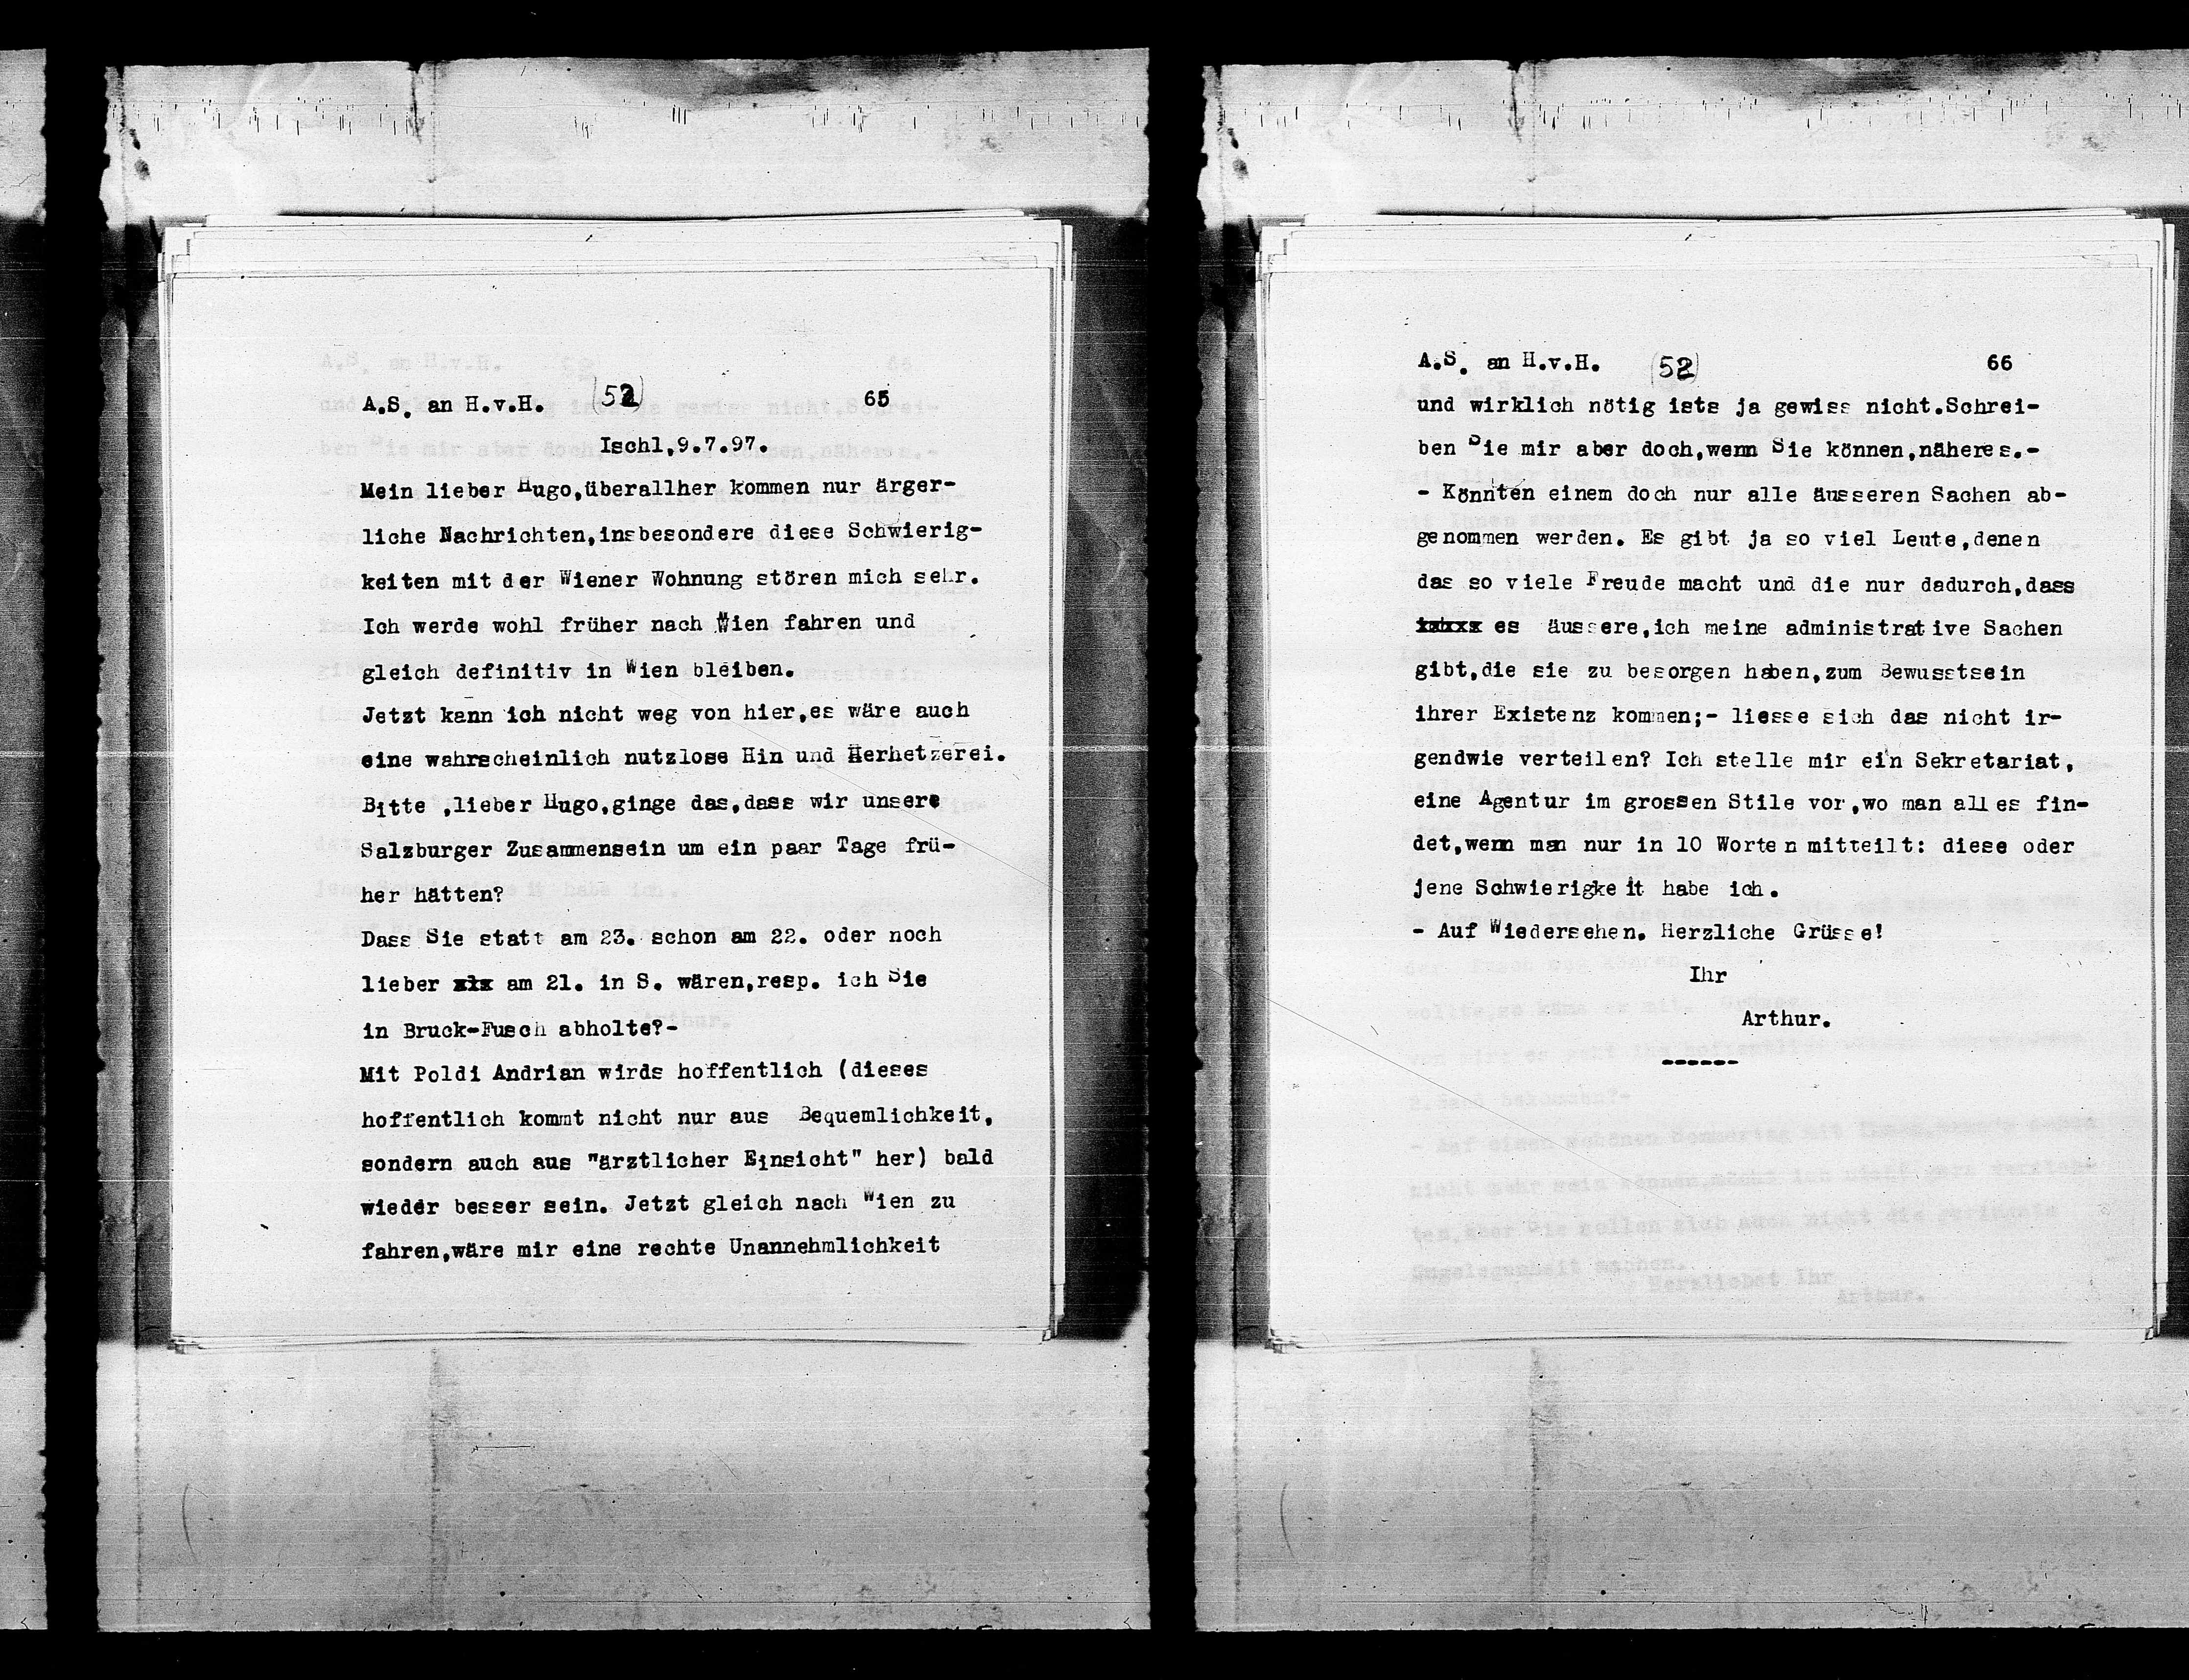 A.S. an H.v.H. (52) 65
Ischl,9.7.97.
Mein lieber Hugo,überallher kommen nur ärger-
liche Nachrichten,insbesondere diese Schwierig-
keiten mit der Wiener Wohnung stören mich sehr.
Ich werde wohl früher nach Wien fahren und
gleich definitiv in Wien bleiben.
Jetzt kann ich nicht weg von hier,es wäre auch
eine wahrscheinlich nutzlose Hin und Herhetzerei.
Bitte ,lieber Hugo,ginge das,dass wir unsere
Salzburger Zusammensein um ein paar Tage frü-
her hätten?
Dass Sie statt am 23. schon am 22. oder noch
lieber am 21. in S. wären,resp. ich Sie
in Bruck-Fusch abholte?-
Mit Poldi Andrian wirds hoffentlich (dieses
hoffentlich kommt nicht nur aus Bequemlichkeit,
sondern auch aus "ärztlicher Einsicht" her) bald
wieder besser sein. Jetzt gleich nach Wien zu
fahren,wäre mir eine rechte Unannehmlichkeit
A.S. an H.v.H. (52) 66
und wirklich nötig ists ja gewiss nicht.Schrei-
ben Sie mir aber doch,wenn Sie können,näheres.-
- Könnten einem doch nur alle äusseren Sachen ab-
genommen werden. Es gibt ja so viel Leute,denen
das so viele Freude macht und die nur dadurch,dass
es äussere,ich meine administrative Sachen
gibt,die sie zu besorgen haben,zum Bewusstsein
ihrer Existenz kommen;- liesse sich das nicht ir-
gendwie verteilen? Ich stelle mir ein Sekretariat,
eine Agentur im grossen Stile vor,wo man alles fin-
det,wenn man nur in 10 Worten mitteilt: diese oder
jene Schwierigkeit habe ich.
- Auf Wiedersehen. Herzliche Grüsse!
Ihr
Arthur.
------